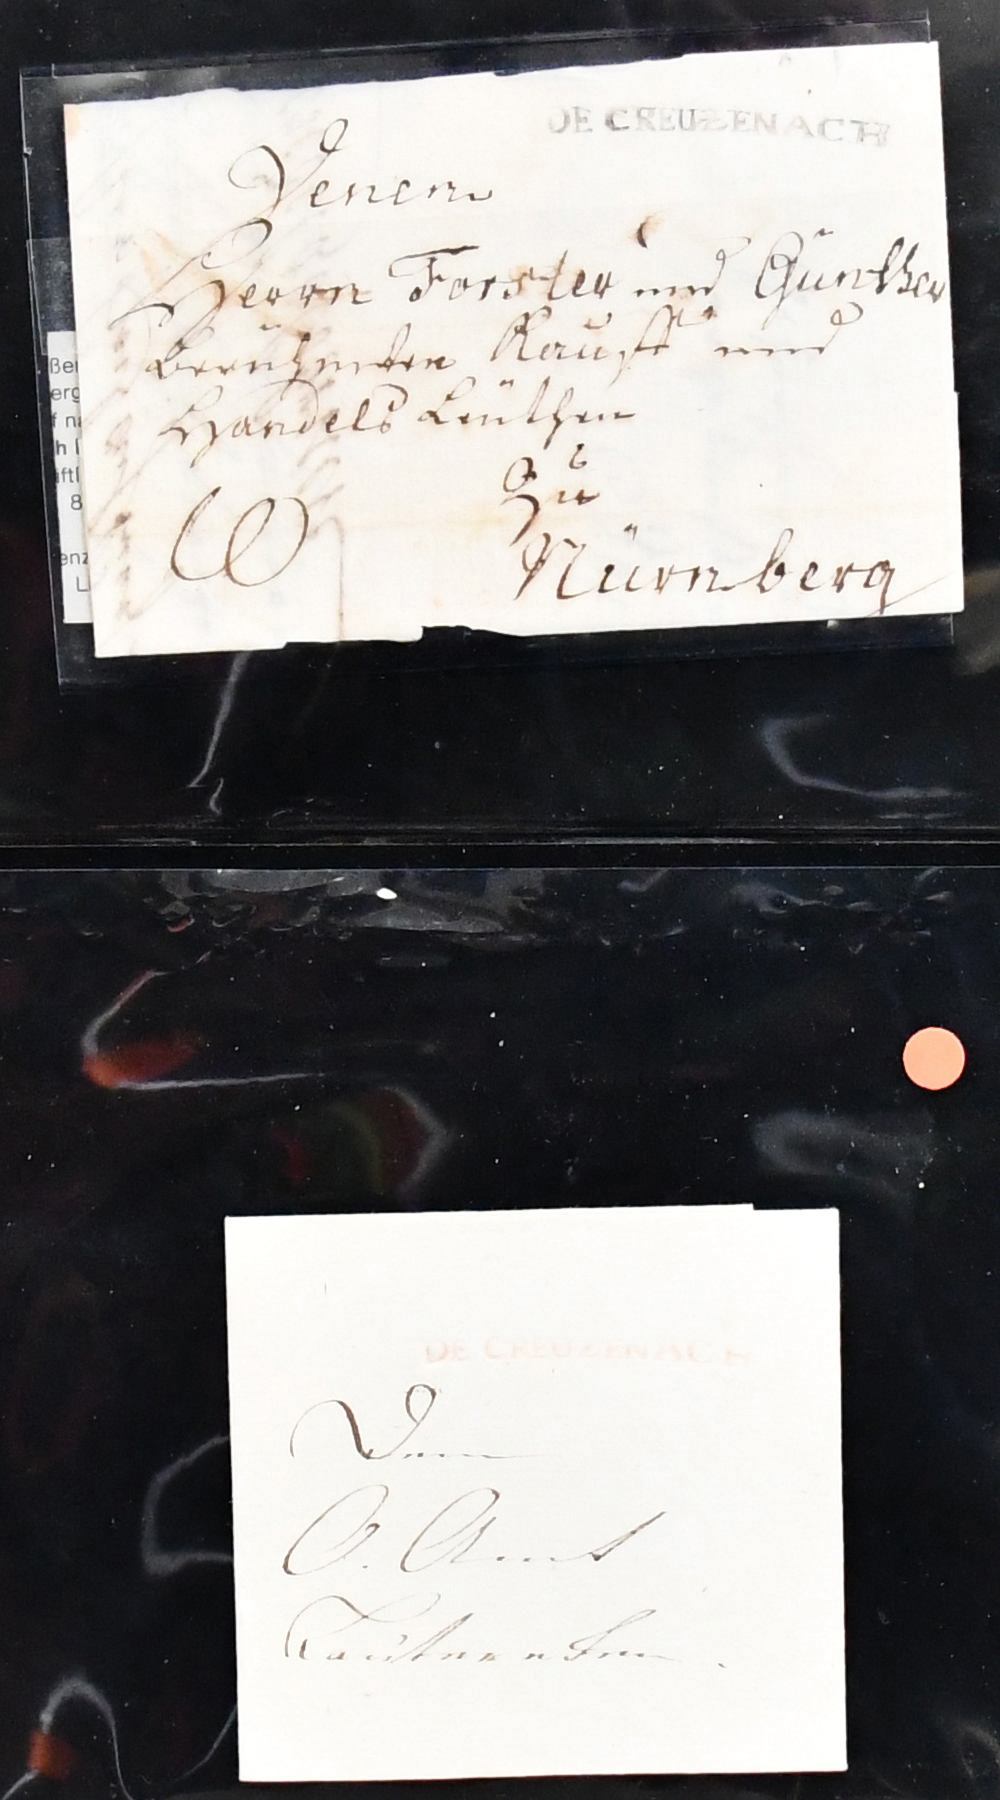 DE CREUZENACH
Denen
Herrn Forster und Günther
berühmten Kauff und
Handels Leüthen
zu
Nürnberg
ßer
erg
f na
h l
iftl
8
enz
L
DE CREUZENACH
Dem
O. Amt